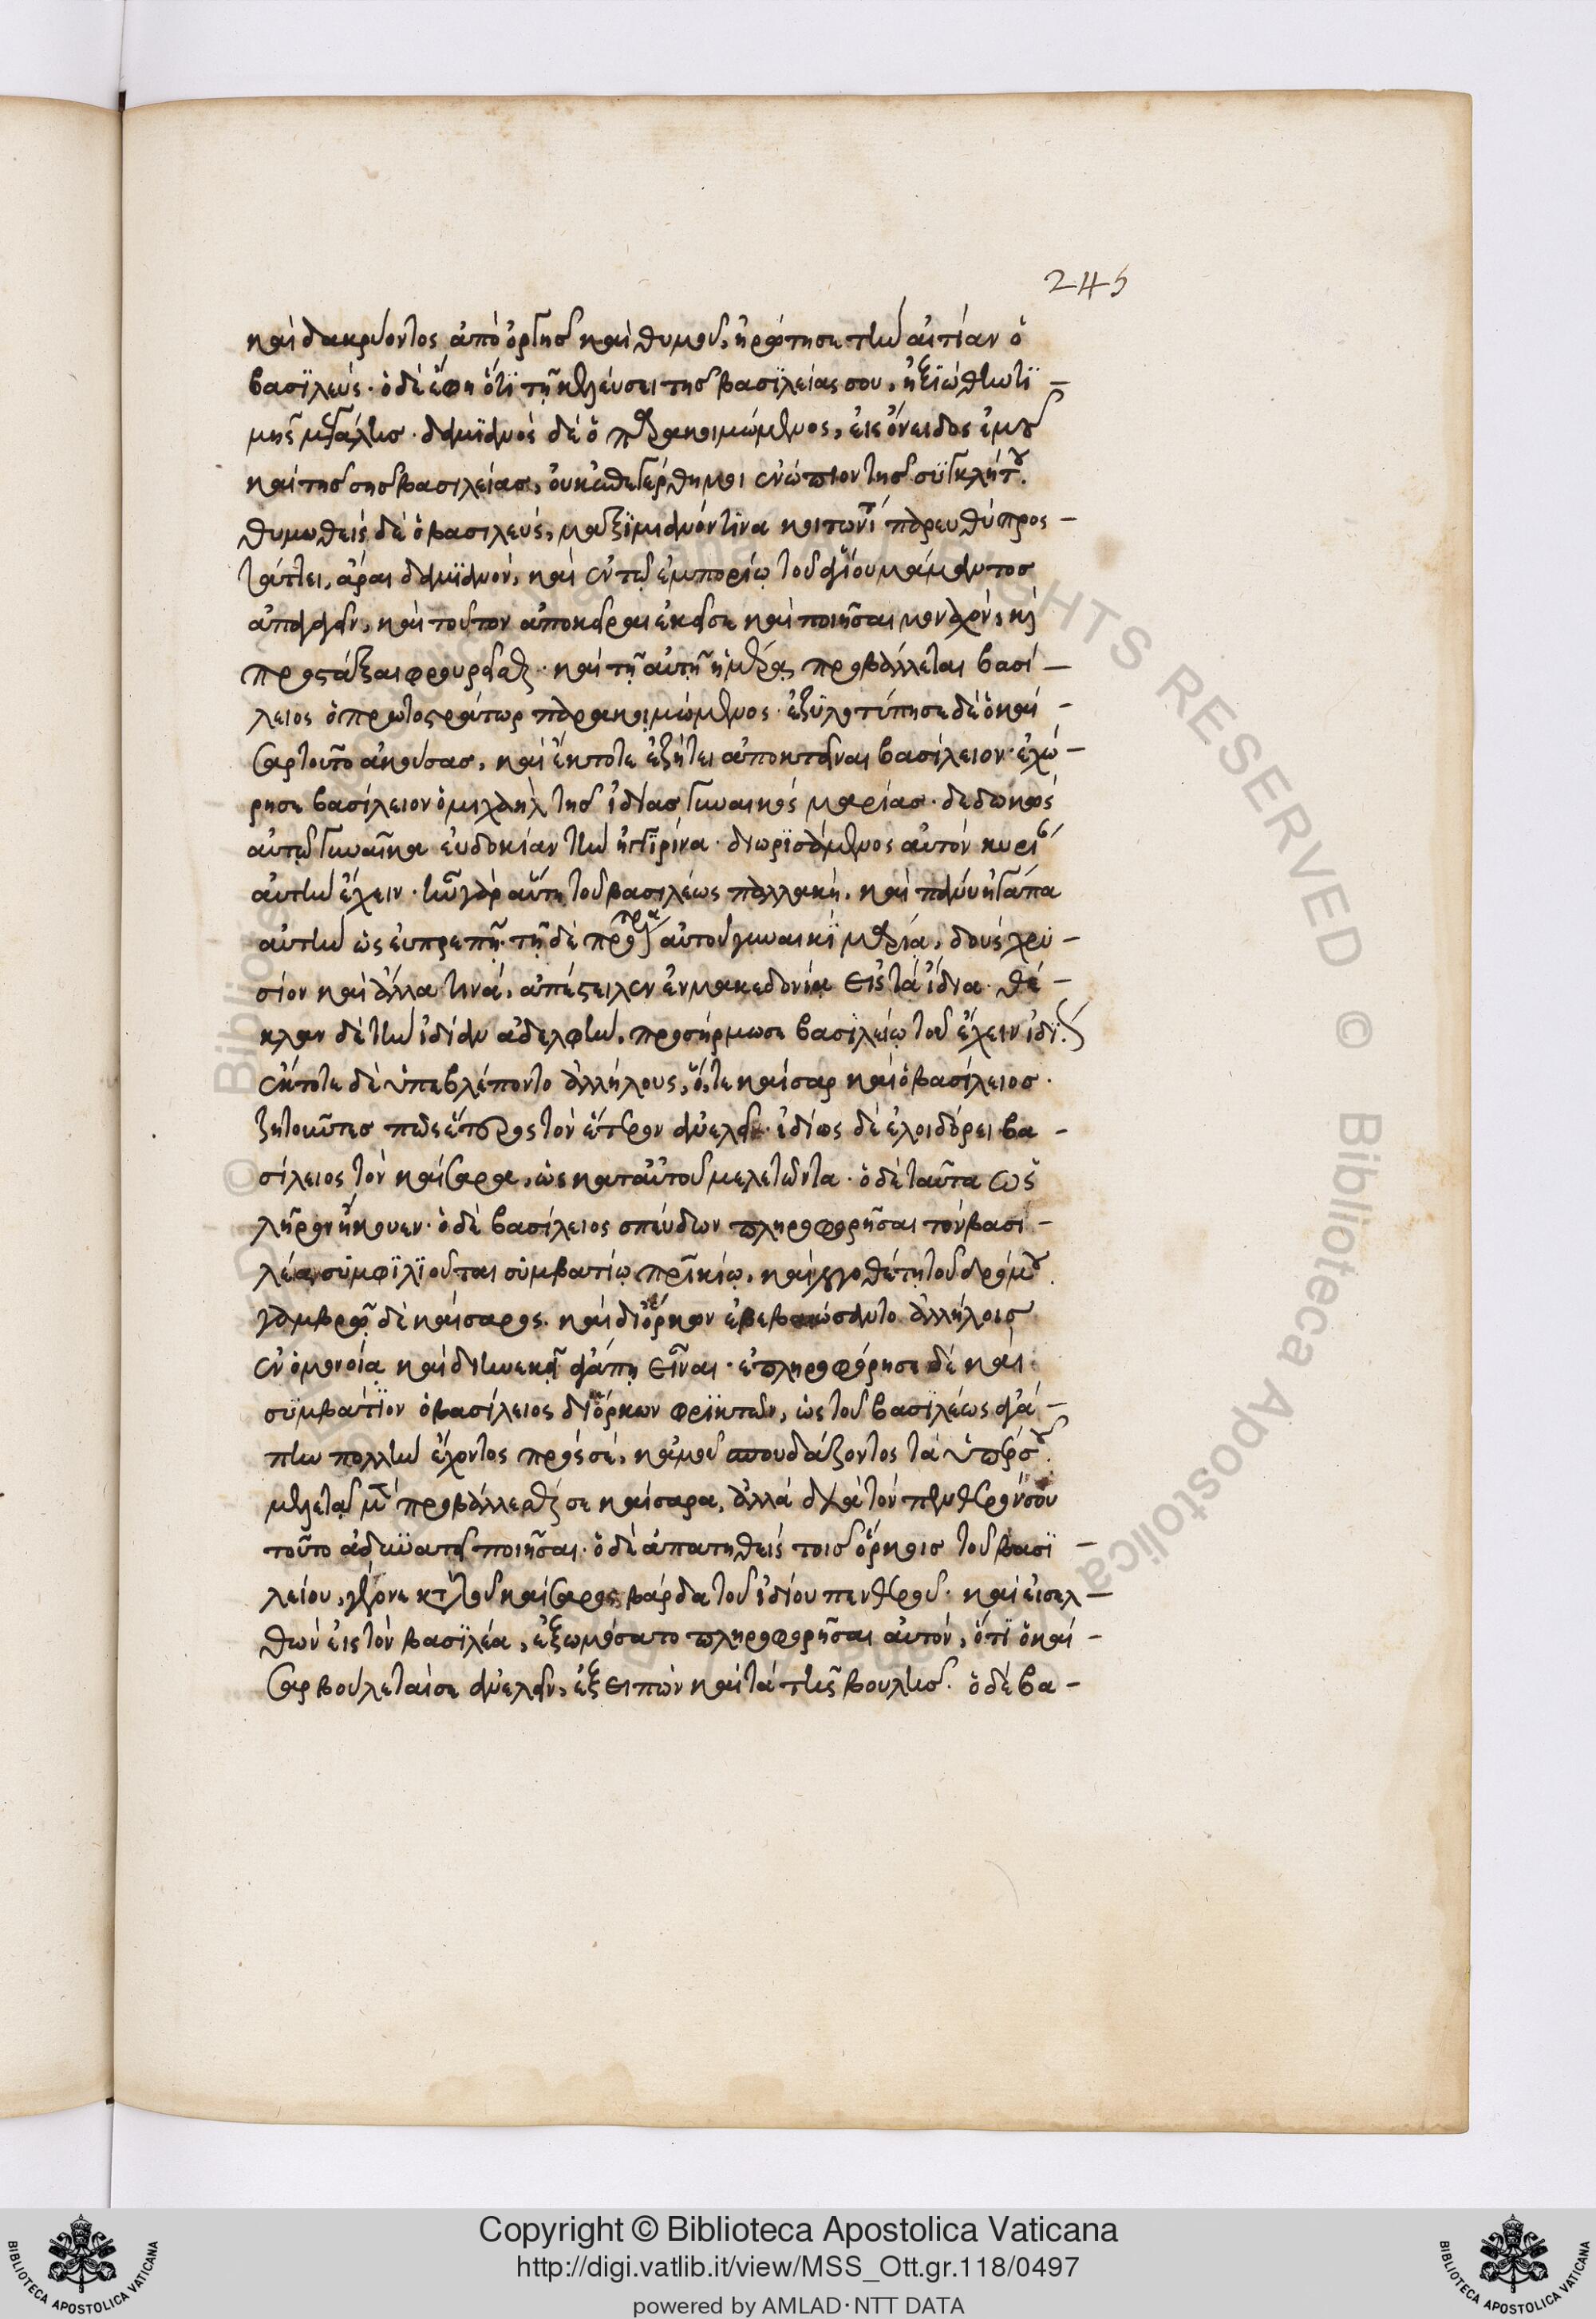 245
καὶ δακρύοντος ἀπὸ ὀργῆς καὶ θυμοῦ, ἠρώτησε τὴν αἰτίαν ὁ
βασϊλεύς· ὁ δὲ ἔφη ὅτϊ τῇ κελεύσει τῆς βασϊλείας σου, ἠξϊώθην τϊ-
μῆς μεγάλης· δαμϊανὸς δὲ ὁ παρακοιμώμενος, εἰς ὄνειδος ἐμοῦ
καὶ τῆς σῆς βασιλείας, οὐκ ἐπεγέρθη μοι ἐνώπιον τῆς συγκλήτου.
θυμωθεὶς δὲ ὁ βασιλεύς, μαξϊμιανόν τϊνα κοιτωνίτην παρευθὺ προς-
τάττει, ἆραι δαμϊανόν, καὶ ἐν τῷ ἐμπορίῳ τοῦ ἁγίου μάμαντος
ἀπαγαγεῖν, καὶ τοῦτον ἀποκεῖραι ἐκεῖσε καὶ ποιῆσαι μοναχόν, καὶ
προστάξαι φρουρεῖσθαι· καὶ τῇ αὐτῇ ἡμέρᾳ προβάλλεται βασί-
λειος ὁ πρωτοστράτωρ παρακοιμώμενος· ἐζϋλοτύπησε δὲ ὁ καί-
σαρ τοῦτο ἀκούσας, καὶ ἔκτοτε ἐζήτει ἀποκτεῖναι βασίλειον· ἐχώ-
ρησε βασίλειον ὁ μιχαὴλ τῆς ἰδίας γυναικὸς μαρίας· δεδωκὼς
αὐτῷ γυναῖκα εὐδοκίαν τὴν ἰγγϊρίνα· διωρϊσάμενος αὐτὸν κυρί
αὐτὴν ἔχειν· ἦν γὰρ αὕτη τοῦ βασιλέως παλλακή, καὶ πάνυ ἠγάπα
αὐτὴν ὡς εὐπρεπῆ· τῇ δὲ αὐτοῦ γυναικϊ μαρίᾳ, δοὺς χρυ-
σίον καὶ ἄλλα τινά, ἀπέστειλεν ἐν μακεδονίᾳ εἰς τὰ ἴδια· θέ-
κλαν δὲ τὴν ἰδίαν ἀδελφήν, προσήρμωσε βασϊλείῳ τοῦ ἔχειν
ἔκτοτε δὲ ὑπεβλέποντο ἀλλήλους, ὅ,τε καῖσαρ καὶ ὁ βασίλειος·
ζητοῦντες πῶς ἕτερος τὸν ἕτερον ἀνελεῖ· ἰδίως δὲ ἐλοιδόρει βα-
σίλειος τὸν καίσαρα, ὡς κατ αὐτοῦ μελετῶντα· ὁ δὲ ταῦτα ὡς
λῆρον ἤκουεν· ὁ δὲ βασίλειος σπεύδων πληροφορῆσαι τὸν βασι-
λέαν συμφϊλϊοῦται συμβατίῳ πατρικίῳ, καὶ λογοθέτῃ τοῦ δρόμου.
γαμβρῷ δὲ καίσαρος· καὶ δι ὅρκων ἐβεβαιώσαντο ἀλλήλοις
ἐν ὁμονοίᾳ καὶ διηνεκεῖ ἀγάπῃ εἶναι· ἐπληροφόρησε δὲ καὶ
συμβάτϊον ὁ βασίλειος δι ὅρκων φρϊκτῶν, ὡς τοῦ βασϊλέως ἀγά-
πην πολλὴν ἔχοντος πρὸς σέ, κἀμοῦ σπουδάζοντος τὰ ὑπὲρ σοῦ.
μελετᾷ μὲν προβάλλεσθαί σε καίσαρα, ἀλλὰ διὰ τὸν πενθερόν σου
τοῦτο ἀδυνατεῖ ποιῆσαι· ὁ δὲ ἀπατηθεὶς τοῖς ὅρκοις τοῦ βασϊ-
λείου, γέγονε κατὰ τοῦ καίσαρος βάρδα τοῦ ἰδίου πενθεροῦ· καὶ εἰσελ-
θὼν εἰς τὸν βασϊλέα, ἐξωμόσατο πληροφορῆσαι αὐτόν, ὅτϊ ὁ καί-
σαρ βούλεταί σε ἀνελεῖν, ἐξειπὼν καὶ τὰ τῆς βουλῆς· ὁ δὲ βα-
Copyright © Biblioteca Apostolica Vaticana
http://digi.vatlib.it/view/MSS_Ott.gr.118/0497
powered by AMLAD·NTT DATA